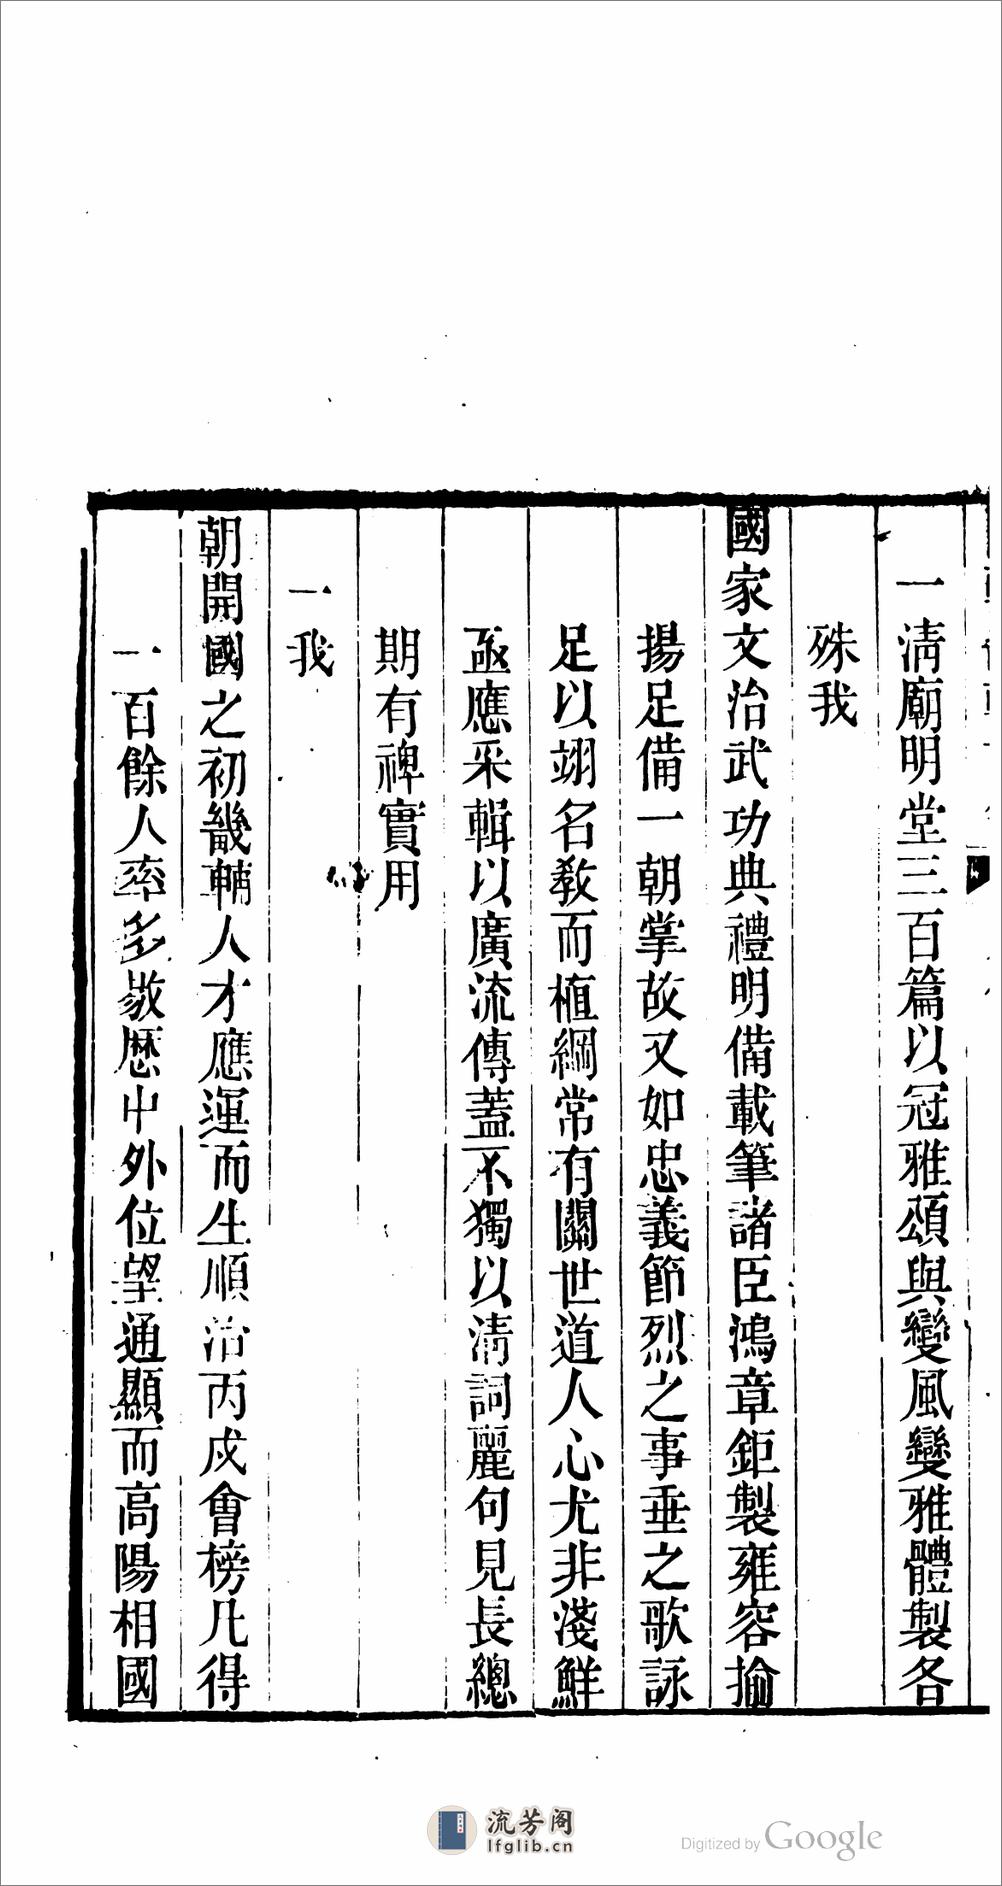 一清廟明堂三百篇以冠雅頌與變風變雅體製各
殊我
國家文治武功典禮明備載筆諸臣鴻章鉅製雍容揄
揚足備一朝掌故又如忠義節烈之事垂之歌詠
足以翊名敎而植綱常有關世道人心尤非淺鮮
亟應采輯以廣流傳蓋不獨以清詞麗句見長總
期有裨實用
一我
朝開國之初畿輔人才應運而生順治丙戌會榜凡得
一百餘人率多敭歷中外位望通顯而高陽相國
流芳阁
lfglib.cn
Digitized by Google